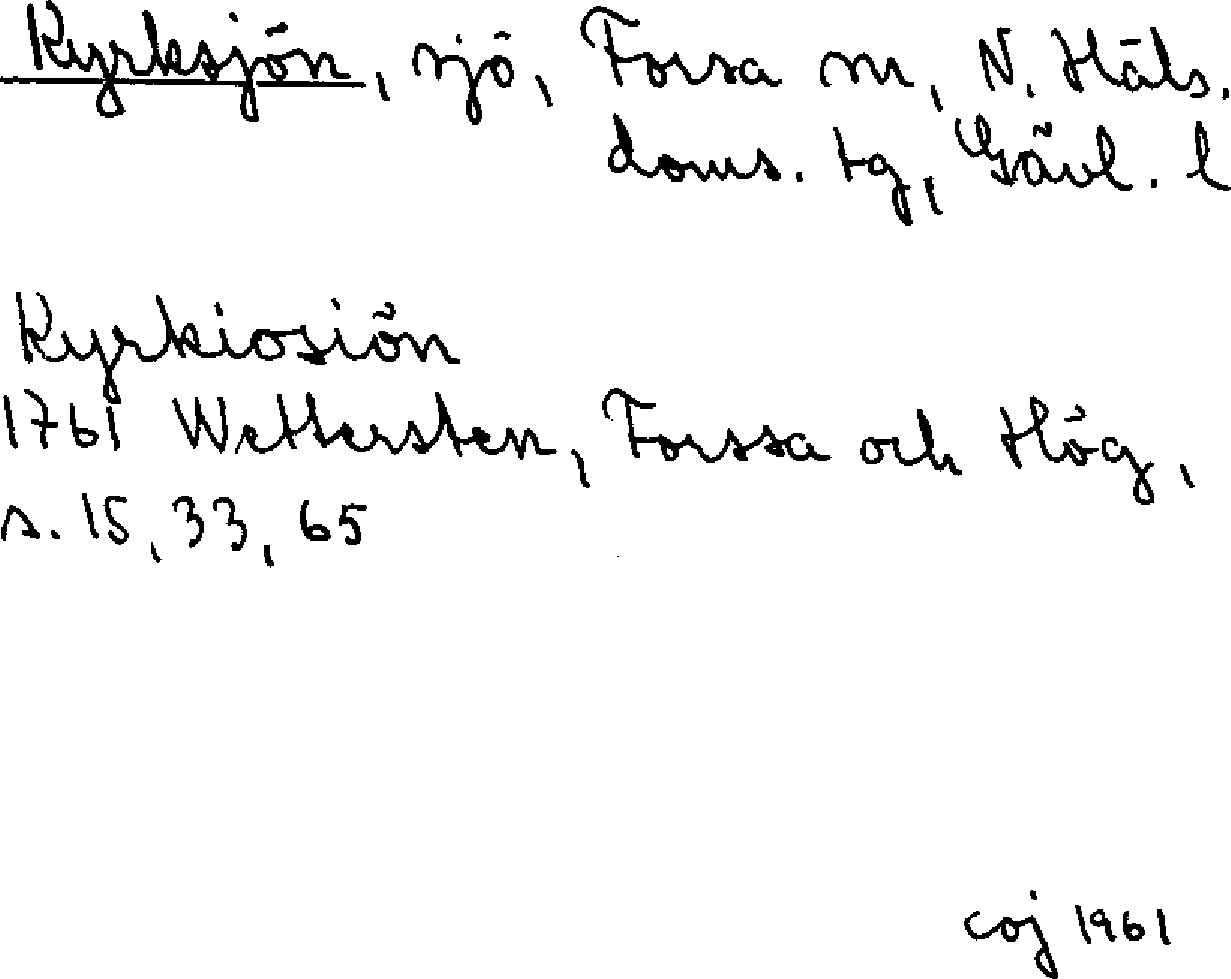 Kyrksjön, sjö, Forsa sn, N. Häls.
doms. tg, Gävl. l
Kyrkiosiön
1761 Wettersten, Forssa och Hög,
s. 15, 33, 65
coj 1961